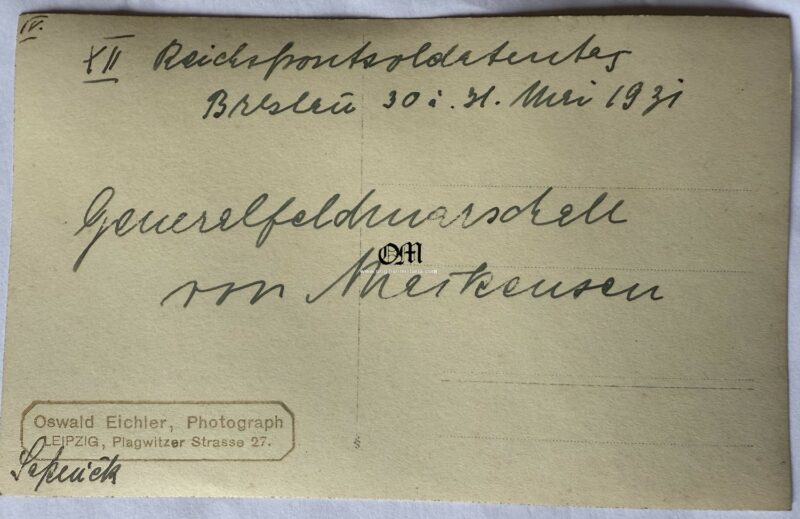 IV.
XII Reichsfrontsoldatentag
Breslau 30 i. 31. Mai 1931
Generalfeldmarschall
OM
von Mackensen
Oswald Eichler, Photograph
LEIPZIG, Plagwitzer Strasse 27.